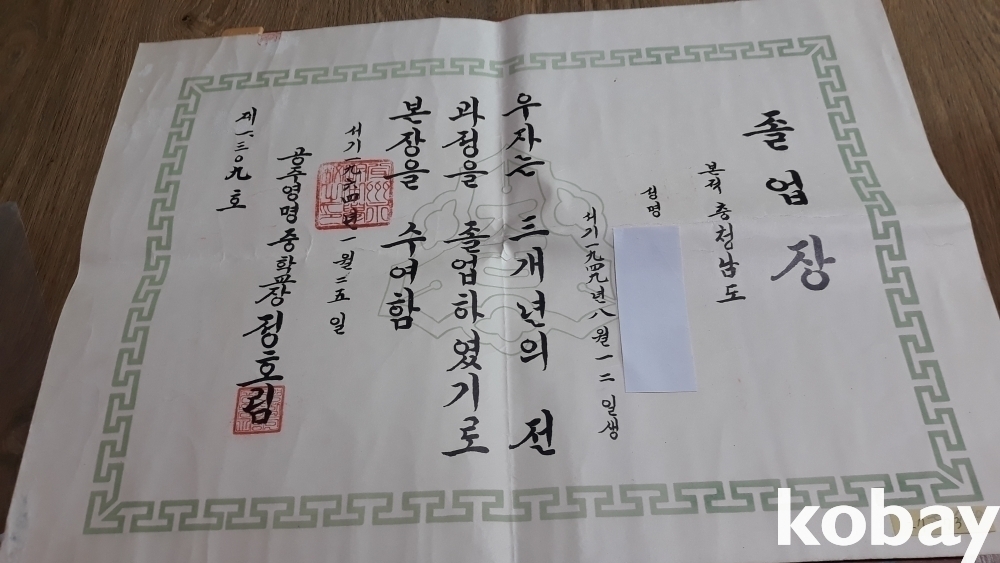 졸업장
본적 충청남도
성명
서기一九四九년八월一二일생
우자는 三개년의 전
과정을 졸업하였기로
본장을 수여함
서기一九六四년一월二五일
공주영명중학교장 정호림
제一三০九호
kobay